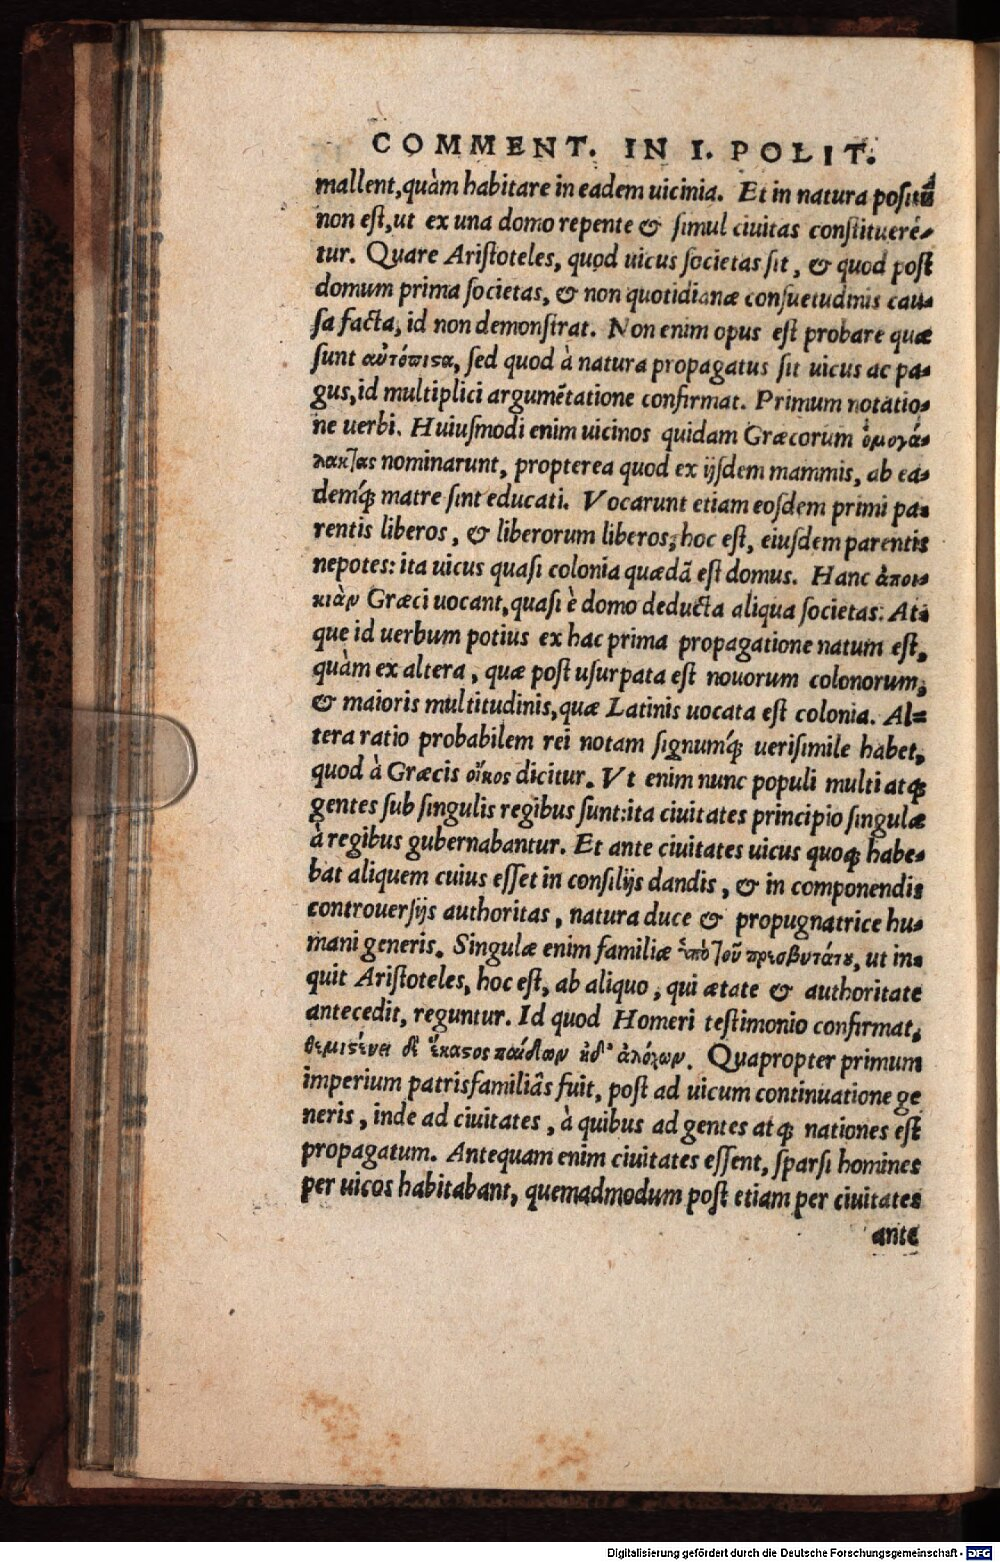 COMMENT. IN I. POLIT.
mallent, quàm habitare in eadem uicinia. Et in natura positū
non est, ut ex una domo repente & simul ciuitas constitueré-
tur. Quare Aristoteles, quod uicus societas sit, & quod post
domum prima societas, & non quotidianæ consuetudinis cau-
sa facta, id non demonstrat. Non enim opus est probare quæ
sunt αὐτόπιστα, sed quod à natura propagatus sit uicus ac pa-
gus, id multiplici argumētatione confirmat. Primum notatio-
ne uerbi. Huiusmodi enim uicinos quidam Græcorum ὁμογά-
λακτας nominarunt, propterea quod ex ijsdem mammis, ab ea-
demq́; matre sint educati. Vocarunt etiam eosdem primi pa-
rentis liberos, & liberorum liberos, hoc est, eiusdem parentis
nepotes: ita uicus quasi colonia quædã est domus. Hanc ἀποι-
κιὰν Græci uocant, quasi è domo deducta aliqua societas. At-
que id uerbum potius ex hac prima propagatione natum est,
quàm ex altera, quæ post usurpata est nouorum colonorum,
& maioris multitudinis, quæ Latinis uocata est colonia. Al-
tera ratio probabilem rei notam signumq́; uerisimile habet,
quod à Græcis οἶκος dicitur. Vt enim nunc populi multi atq;
gentes sub singulis regibus sunt: ita ciuitates principio singulæ
à regibus gubernabantur. Et ante ciuitates uicus quoq; habe-
bat aliquem cuius esset in consilijs dandis, & in componendis
controuersijs authoritas, natura duce & propugnatrice hu-
mani generis. Singulæ enim familiæ ὑπὸ τοῦ πρεσβυτάτου, ut in-
quit Aristoteles, hoc est, ab aliquo, qui ætate & authoritate
antecedit, reguntur. Id quod Homeri testimonio confirmat,
θεμιστεύει δὲ ἕκαστος παίδων ἠδ' ἀλόχων. Quapropter primum
imperium patrisfamiliâs fuit, post ad uicum continuatione ge
neris, inde ad ciuitates, à quibus ad gentes atq; nationes est
propagatum. Antequam enim ciuitates essent, sparsi homines
per uicos habitabant, quemadmodum post etiam per ciuitates
ante
Digitalisierung gefördert durch die Deutsche Forschungsgemeinschaft - DFG